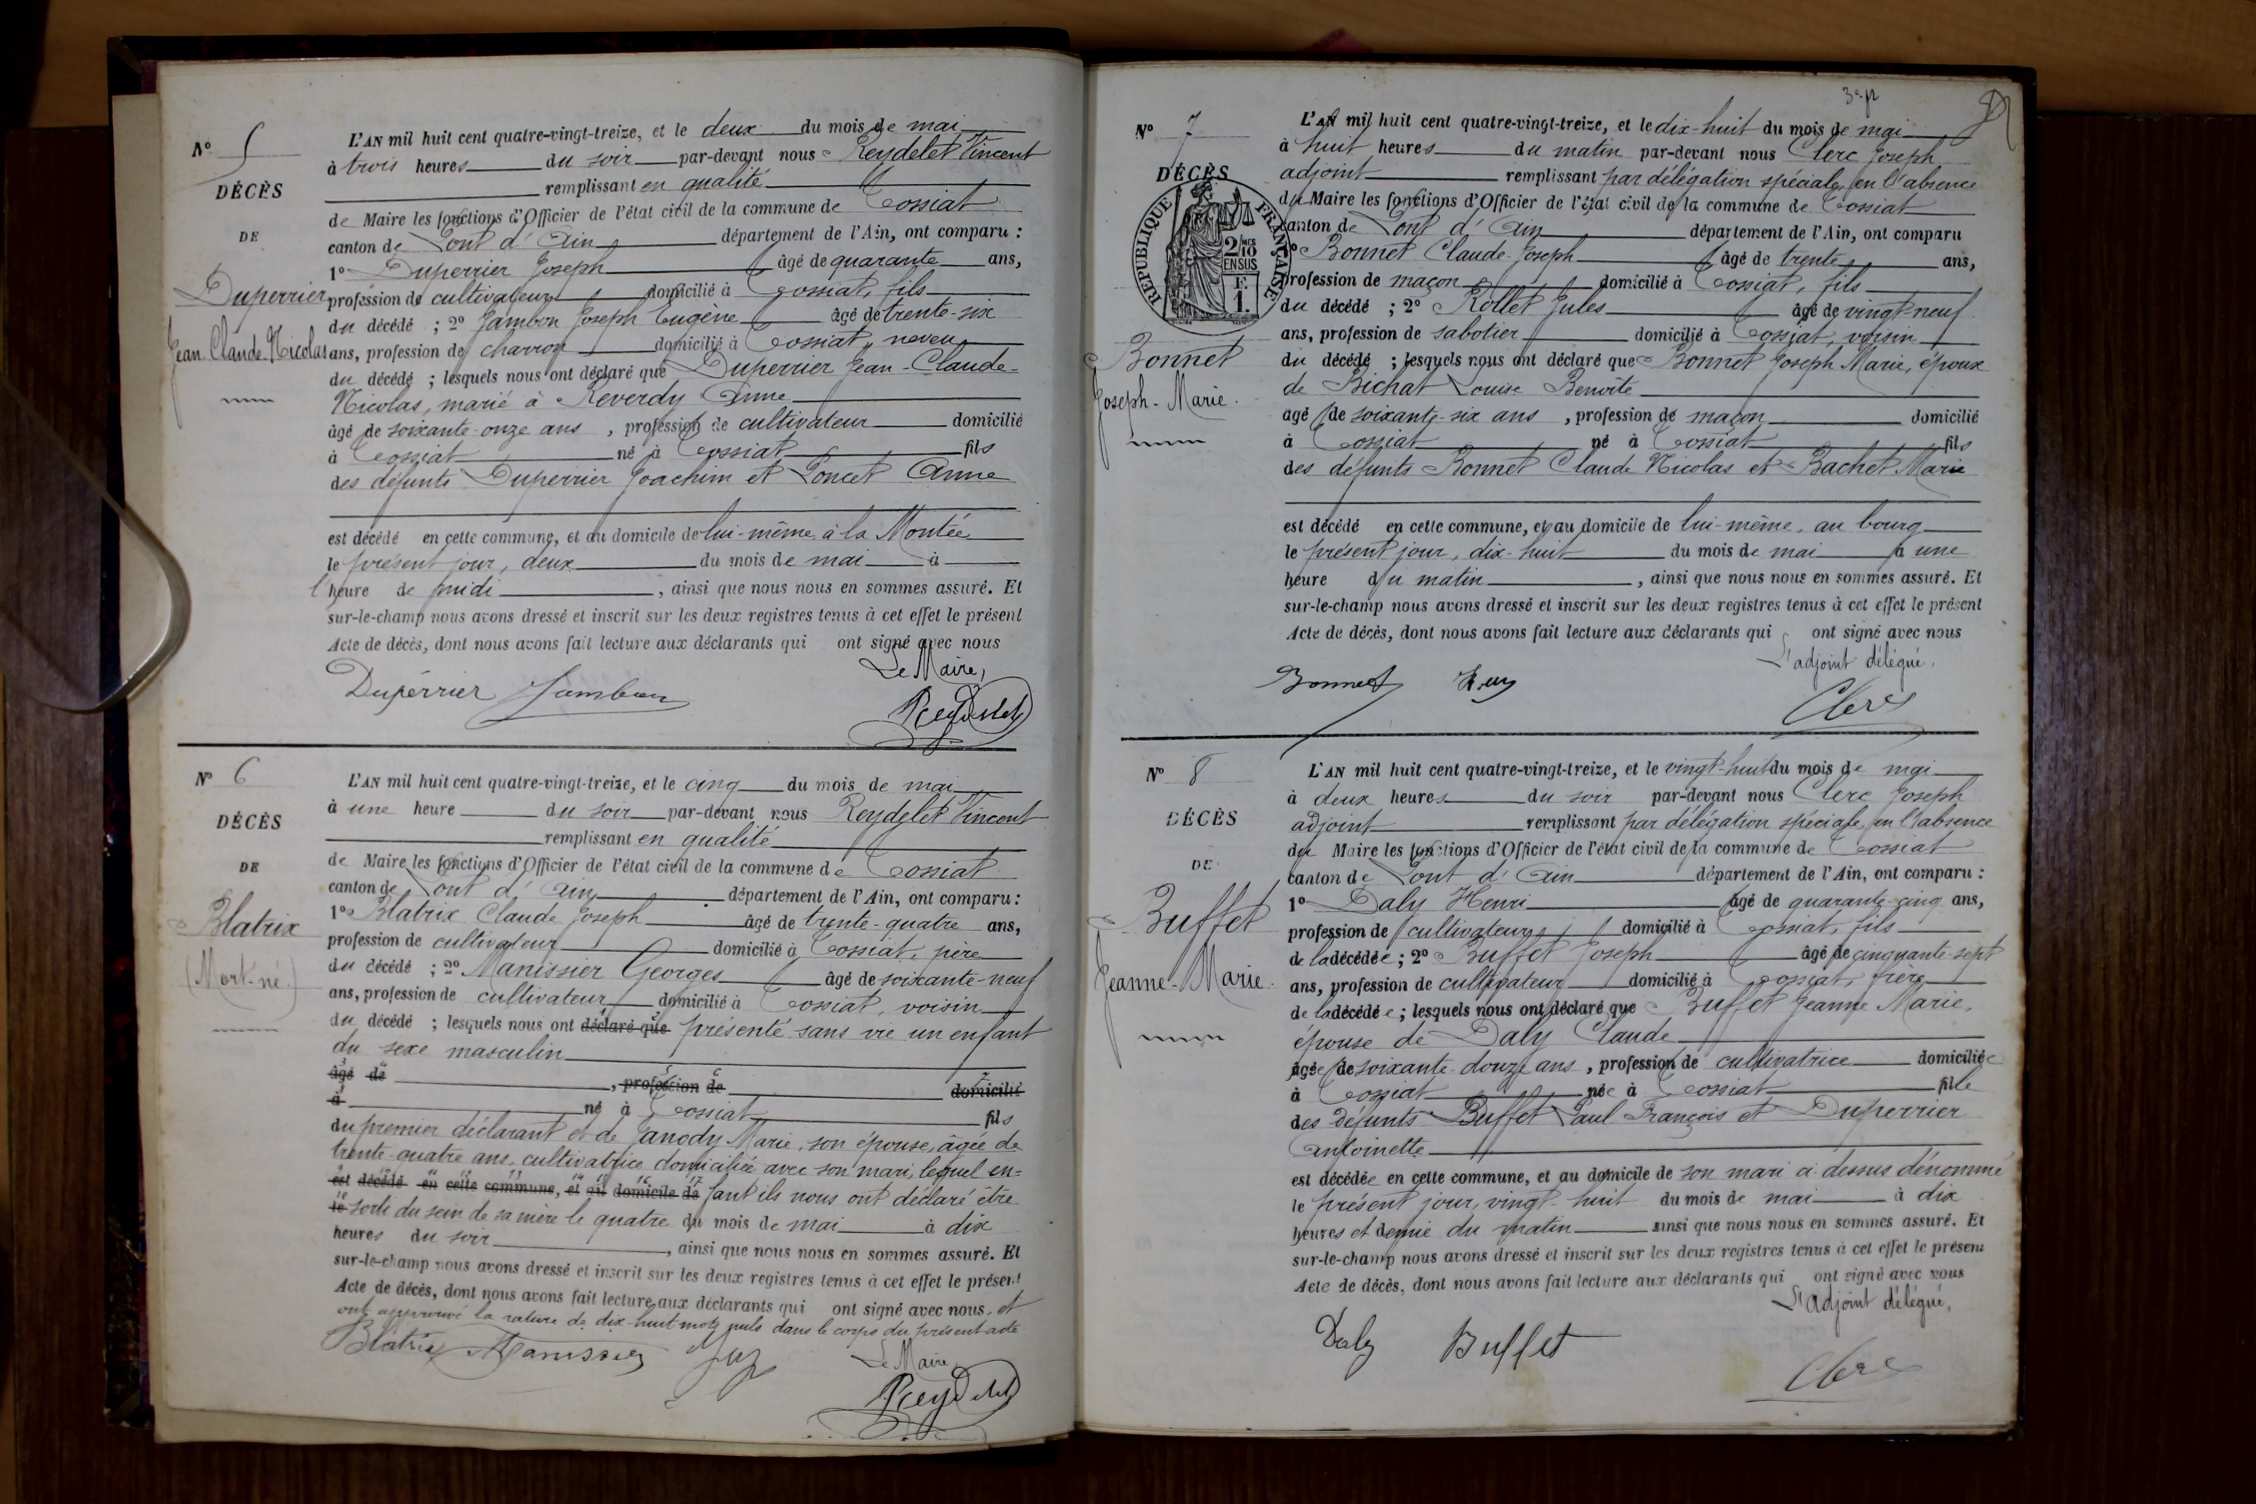 N° 5
DÉCÈS
DE
Duperrier
Jean-Claude-Nicolas
L'AN mil huit cent quatre-vingt-treize, et le deux du mois de mai
à trois heures du soir par-devant nous Reydelet Vincent
remplissant en qualité
de Maire les fonctions d'Officier de l'état civil de la commune de Tossiat
canton de Pont d'Ain département de l'Ain, ont comparu :
1° Duperrier Joseph âgé de quarante ans,
profession de cultivateur domicilié à Tossiat, fils
du décédé ; 2° Jambon Joseph Eugène âgé de trente-six
ans, profession de charron domicilié à Tossiat, neveu
du décédé ; lesquels nous ont déclaré que Duperrier Jean-Claude-
Nicolas, marié à Reverdy Anne
âgé de soixante-onze ans, profession de cultivateur domicilié
à Tossiat né à Tossiat fils
des défunts Duperrier Joachim et Poncet Anne
est décédé en cette commune, et au domicile de lui-même, à la Montée
le présent jour, deux du mois de mai à
l'heure de midi, ainsi que nous nous en sommes assuré. Et
sur-le-champ nous avons dressé et inscrit sur les deux registres tenus à cet effet le présent
Acte de décès, dont nous avons fait lecture aux déclarants qui ont signé avec nous
Le Maire,
Dupérrier Jambon
Reydelet
N° 6
DÉCÈS
DE
Blatrix
(Mort-né)
L'AN mil huit cent quatre-vingt-treize, et le cinq du mois de mai
à une heure du soir par-devant nous Reydelet Vincent
remplissant en qualité
de Maire les fonctions d'Officier de l'état civil de la commune de Tossiat
canton de Pont d'Ain département de l'Ain, ont comparu :
1° Blatrix Claude Joseph âgé de trente-quatre ans,
profession de cultivateur domicilié à Tossiat, père
du décédé ; 2° Manissier Georges âgé de soixante-neuf
ans, profession de cultivateur domicilié à Tossiat, voisin
du décédé ; lesquels nous ont déclaré que présenté sans vie un enfant
du sexe masculin
âgé de , profession de domicilié
à né à Tossiat fils
du premier déclarant et de Janody Marie, son épouse, âgée de
trente-quatre ans, cultivatrice domiciliée avec son mari, lequel en-
est décédé en cette commune, et au domicile de fant ils nous ont déclaré être
le sorti du sein de sa mère le quatre du mois de mai à dix
heures du soir, ainsi que nous nous en sommes assuré. Et
sur-le-champ nous avons dressé et inscrit sur les deux registres tenus à cet effet le présent
Acte de décès, dont nous avons fait lecture aux déclarants qui ont signé avec nous, et
ont approuvé la rature de dix-huit mots nuls dans le corps du présent acte
Blatrix Manissier
Le Maire,
Reydelet
3e p
N° 7
DÉCÈS
RÉPUBLIQUE FRANÇAISE
2/10 EN SUS
F.
1.
Bonnet
Joseph-Marie.
L'AN mil huit cent quatre-vingt-treize, et le dix-huit du mois de mai
à huit heures du matin par-devant nous Clerc Joseph
adjoint remplissant par délégation spéciale, en l'absence
du Maire les fonctions d'Officier de l'état civil de la commune de Tossiat
canton de Pont d'Ain département de l'Ain, ont comparu
1° Bonnet Claude-Joseph âgé de trente ans,
profession de maçon domicilié à Tossiat, fils
du décédé ; 2° Rollet Jules âgé de vingt-neuf
ans, profession de sabotier domicilié à Tossiat, voisin
du décédé ; lesquels nous ont déclaré que Bonnet Joseph Marie, époux
de Bichat Louise Benoîte
agé de soixante-six ans, profession de maçon domicilié
à Tossiat né à Tossiat fils
des défunts Bonnet Claude Nicolas et Bachet Marie
est décédé en cette commune, et au domicile de lui-même, au bourg
le présent jour, dix-huit du mois de mai à une
heure du matin, ainsi que nous nous en sommes assuré. Et
sur-le-champ nous avons dressé et inscrit sur les deux registres tenus à cet effet le présent
Acte de décès, dont nous avons fait lecture aux déclarants qui ont signé avec nous
L'adjoint délégué,
Bonnet
Clerc
N° 8
DÉCÈS
DE
Buffet
Jeanne-Marie.
L'AN mil huit cent quatre-vingt-treize, et le vingt-huit du mois de mai
à deux heures du soir par-devant nous Clerc Joseph
adjoint remplissant par délégation spéciale, en l'absence
du Maire les fonctions d'Officier de l'état civil de la commune de Tossiat
canton de Pont d'Ain département de l'Ain, ont comparu :
1° Daly Henri âgé de quarante-cinq ans,
profession de cultivateur domicilié à Tossiat, fils
de la décédée ; 2° Buffet Joseph âgé de cinquante-sept
ans, profession de cultivateur domicilié à Tossiat, frère
de la décédée ; lesquels nous ont déclaré que Buffet Jeanne Marie,
épouse de Daly Claude
âgée de soixante-douze ans, profession de cultivatrice domiciliée
à Tossiat née à Tossiat fille
des défunts Buffet Paul François et Duperrier
Antoinette
est décédée en cette commune, et au domicile de son mari ci-dessus dénommé
le présent jour, vingt-huit du mois de mai à dix
heures et demie du matin ainsi que nous nous en sommes assuré. Et
sur-le-champ nous avons dressé et inscrit sur les deux registres tenus à cet effet le présent
Acte de décès, dont nous avons fait lecture aux déclarants qui ont signé avec nous
L'adjoint délégué,
Daly Buffet
Clerc